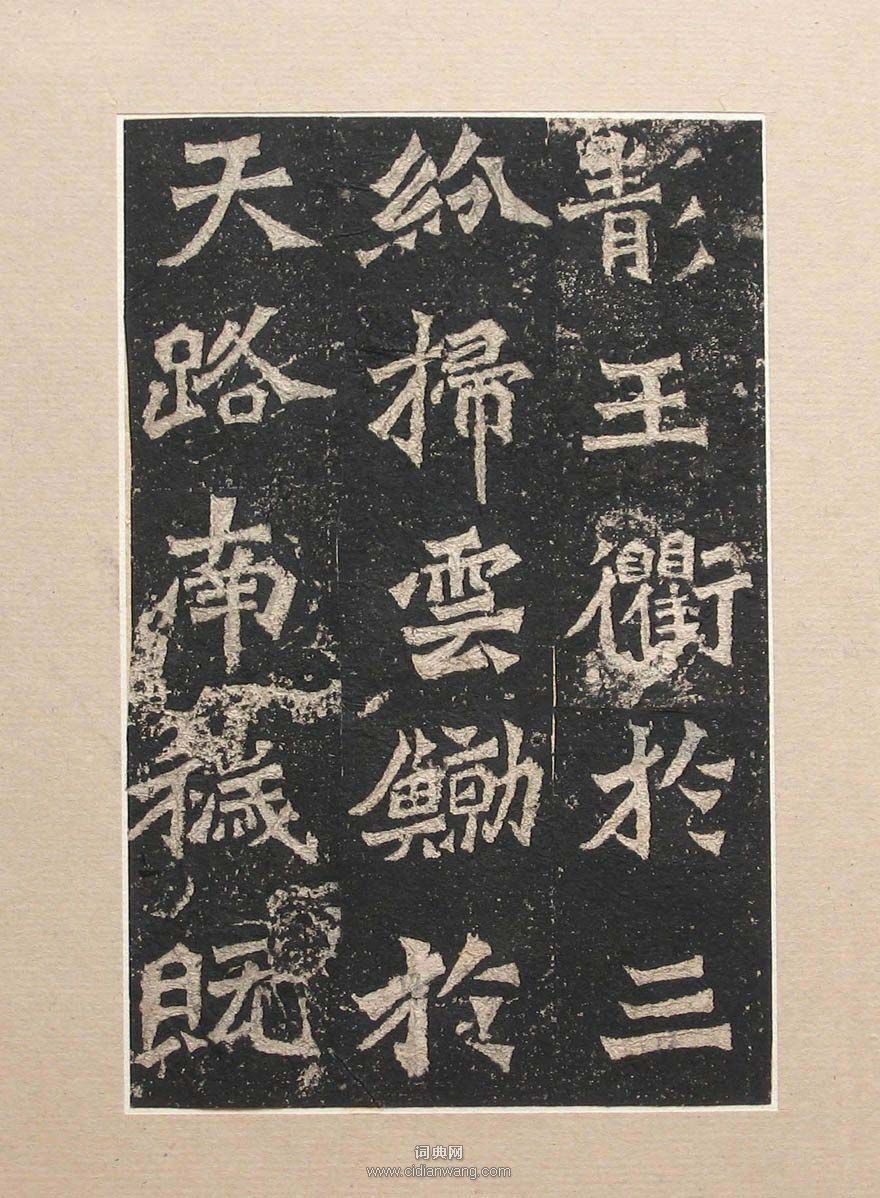 清王衢於三
紛掃雲鯨於
天路南穢既
词典网
www.cidianwang.com